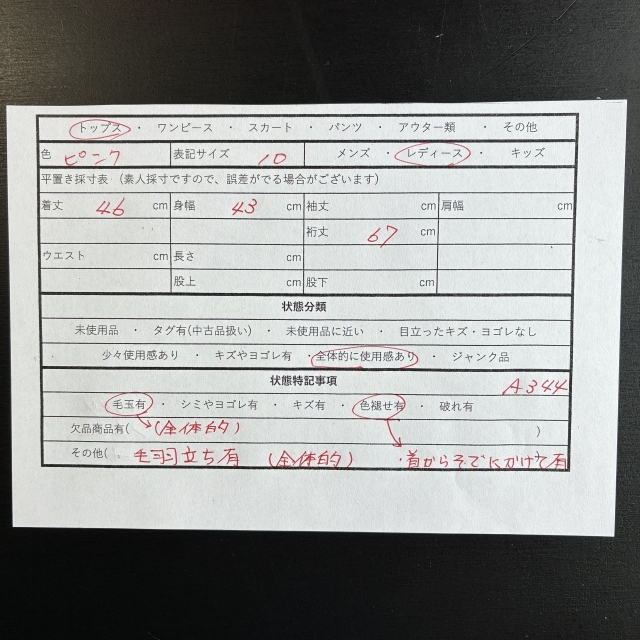 トップス ・ ワンピース ・ スカート ・ パンツ ・ アウター類 ・ その他
色 ピンク 表記サイズ 10 メンズ ・ レディース ・ キッズ
平置き採寸表 (素人採寸ですので、誤差がでる場合がございます)
着丈 46 cm 身幅 43 cm 袖丈 cm 肩幅 cm
裄丈 67 cm
ウエスト cm 長さ cm
股上 cm 股下 cm
状態分類
未使用品 ・ タグ有(中古品扱い) ・ 未使用品に近い ・ 目立ったキズ・ヨゴレなし
少々使用感あり ・ キズやヨゴレ有 ・ 全体的に使用感あり ・ ジャンク品
状態特記事項
A344
毛玉有 ・ シミやヨゴレ有 ・ キズ有 ・ 色褪せ有 ・ 破れ有
欠品商品有( (全体的) )
その他( 毛羽立ち有 (全体的) ・首からそでにかけて有